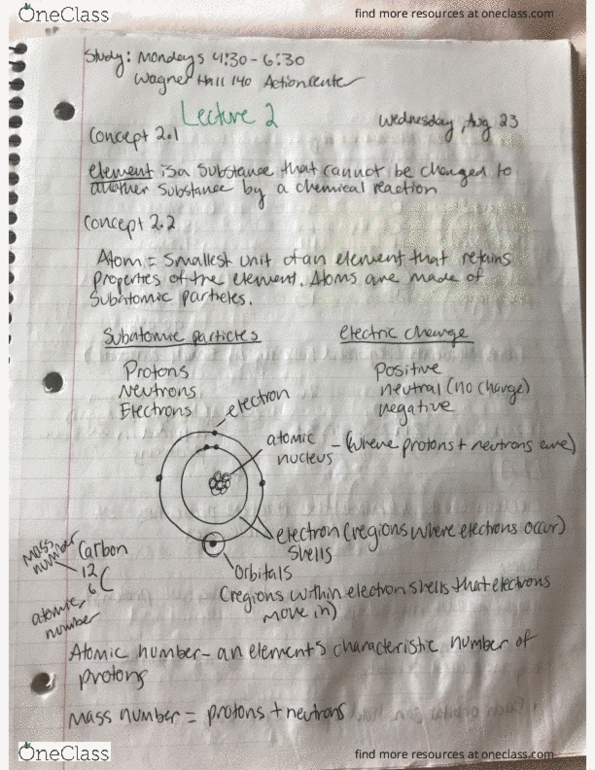 OneClass
find more resources at oneclass.com
Study: Mondays 4:30-6:30
Wagner Hall 140 Action Center
Lecture 2
Wednesday, Aug 23
Concept 2.1
element is a substance that cannot be changed to
another substance by a chemical reaction
Concept 2.2
Atom = Smallest unit of an element that retains
properties of the element. Atoms are made of
Subatomic particles.
Subatomic particles
electric charge
Protons
positive
Neutrons
neutral (no charge)
Electrons
negative
electron
atomic nucleus - (where protons + neutrons are)
electron (regions where electrons occur)
shells
orbitals
(regions within electron shells that electrons
move in)
mass number
Carbon
12
6
C
atomic number
Atomic number - an element's characteristic number of
protons
Mass number = protons + neutrons
OneClass
find more resources at oneclass.com